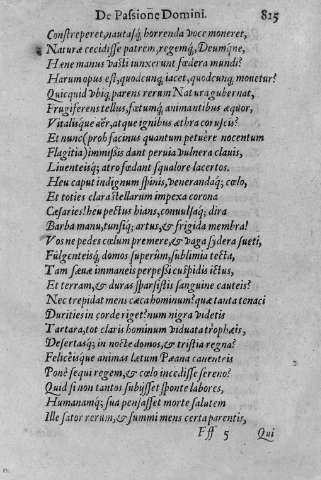 De Passione Domini. 825
Constreperet, nautasq́; horrenda voce moneret,
Naturæ cecidisse patrem, regemq́;, Deumq́ne,
Hæne manus vasti iunxerunt fœdera mundi?
Harum opus est, quodcunq; iacet, quodcunq; mouetur?
Quicquid vbiq; parens rerum Natura gubernat,
Frugiferens tellus, fœtumq́; animantibus æquor,
Vitalisque aër, atque ignibus æthra coruscis?
Et nunc (proh facinus quantum petuêre nocentum
Flagitia) immissis dant peruia vulnera clauis,
Liuenteisq́; atro fœdant squalore lacertos.
Heu caput indignum spinis, venerandaq́; cœlo,
Et toties clara stellarum impexa corona
Cæsaries! heu pectus hians, conuulsaq́; dira
Barba manu, tunsiq́; artus, & frigida membra!
Vos ne pedes cœlum premere, & vaga sydera sueti,
Fulgenteisq́; domos superûm, sublimia tecta,
Tam sæuæ immaneis perpessi cuspidis ictus,
Et terram, & duras sparsistis sanguine cauteis?
Nec trepidat mens cæca hominum? quæ tanta tenaci
Durities in corde riget? num nigra videtis
Tartara, tot claris hominum viduata trophæis,
Desertasq́; in nocte domos, & tristia regna?
Felicêisque animas lætum Pæana canenteis
Ponè sequi regem, & cœlo incedisse sereno?
Quid si non tantos subijsset sponte labores,
Humanamq́; sua pensasset morte salutem
Ille sator rerum, & summi mens certa parentis,
Fff 5 Qui